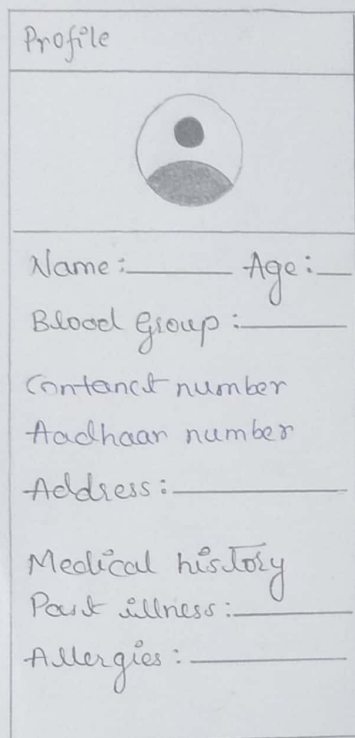 Profile
Name:______ Age:__
Blood group:______
Contanct number
Aadhaar number
Address:__________
Medical history
Past illness:______
Allergies:________